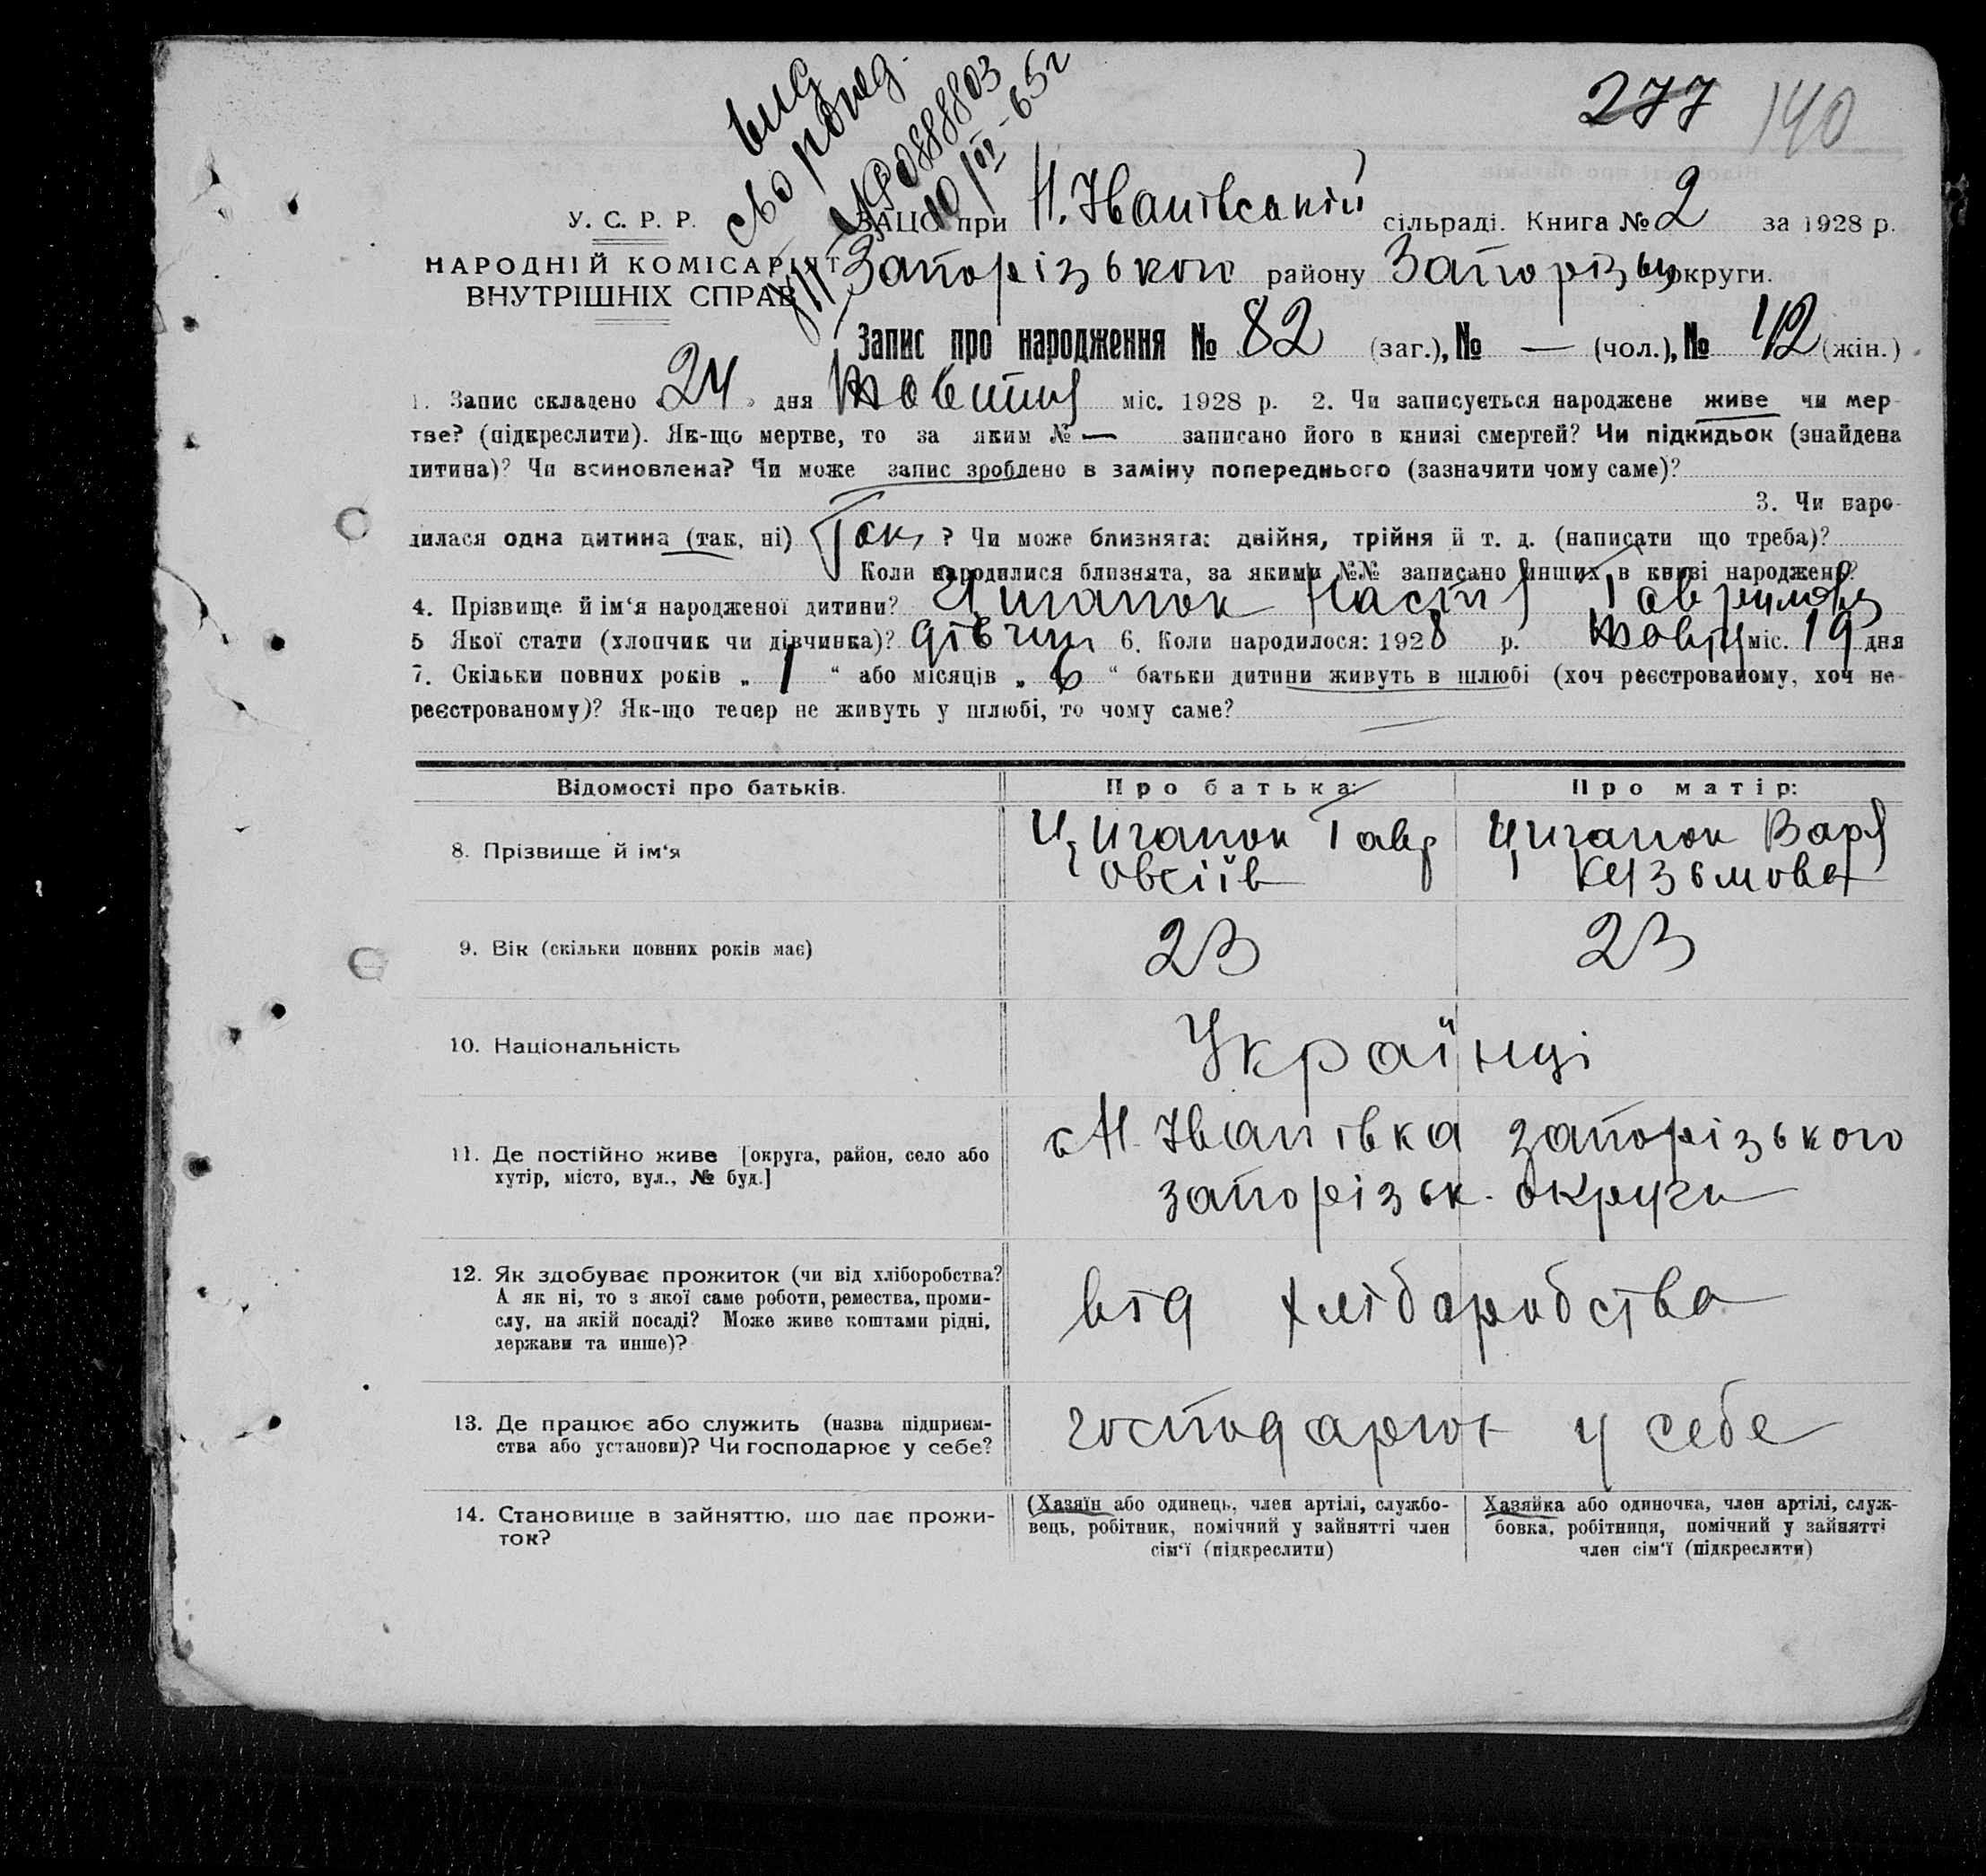 277 140
вид
св о рожд.
У. С. Р. Р.
ЗАЦС при Н. Іванівській сільраді. Книга № 2 за 1928 р.
НАРОДНІЙ КОМІСАРІЯТ
ВНУТРІШНІХ СПРАВ
Запорізького району Запорізьк округи.
Запис про народження № 82 (заг.), № — (чол.), № 42 (жін.)
1. Запис складено « 24 » дня Жовтня міс. 1928 р. 2. Чи записується народжене живе чи мер-
тве? (підкреслити). Як-що мертве, то за яким № — записано його в книзі смертей? Чи підкидьок (знайдена
дитина)? Чи всиновлена? Чи може запис зроблено в заміну попереднього (зазначити чому саме)?
3. Чи наро-
дилася одна дитина (так, ні) Так ? Чи може близнята: двійня, трійня й т. д. (написати що треба)?
Коли народилися близнята, за якими №№ записано инших в книзі народжень?
4. Прізвище й ім‘я народженої дитини? Циганок Настя Гаврилова
5 Якої стати (хлопчик чи дівчинка)? дівчин 6. Коли народилося: 1928 р. Жовтн міс. 19 дня
7. Скільки повних років „ 1 “ або місяців „ 6 “ батьки дитини живуть в шлюбі (хоч реєстрованому, хоч не-
реєстрованому)? Як-що тепер не живуть у шлюбі, то чому саме?
Відомості про батьків. Про батька: Про матір:
8. Прізвище й ім‘я Циганок Гавр Циганок Варя
Овсіїв Кузьмова
9. Вік (скільки повних років має) 23 23
10. Національність Українці
11. Де постійно живе [округа, район, село або
хутір, місто, вул., № буд.]
с Н. Іванівка запорізького
запорізьк. округи
12. Як здобуває прожиток (чи від хліборобства?
А як ні, то з якої саме роботи, ремества, проми-
слу, на якій посаді? Може живе коштами рідні,
держави та инше)?
від хлібаробства
13. Де працює або служить (назва підприєм-
ства або установи)? Чи господарює у себе?
господарюют у себе
14. Становище в зайняттю, що дає прожи-
ток?
(Хазяїн або одинець, член артілі, службо-
вець, робітник, помічний у зайнятті член
сім‘ї (підкреслити)
Хазяйка або одиночка, член артілі, служ-
бовка, робітниця, помічний у зайнятті
член сім‘ї (підкреслити)